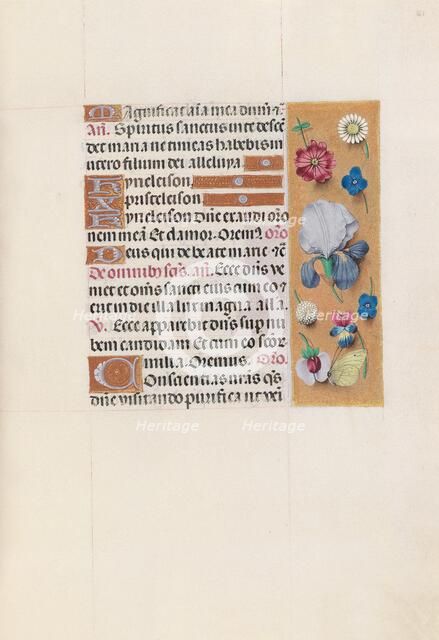 Magnificat aĩa mea dñm ⁊c̃
Añ. Spiritus sanctus in te descē
det maria ne timeas habebis in
utero filium dei alleluya
Kyrieleison
Xpristeleison
Kyrieleison Dñe exaudi orõ
nem meã Et clamor. Oremꝰ orõ
Deus qui de beate marie ⁊c̃
De omnibꝰ scĩs. añ. Ecce dñs ve
niet et oẽs sancti eius cum eo ⁊
erit in die illa lux magna alla.
V. Ecce apparebit dñs sup nu
bem candidam Et cum eo scõr
milia. Oremus. Orõ.
Consciẽtias nrãs qs
dñe visitando purifica ut veĩ
Heritage
Heritage
Heritage
Heritage
Heritage
Heritage